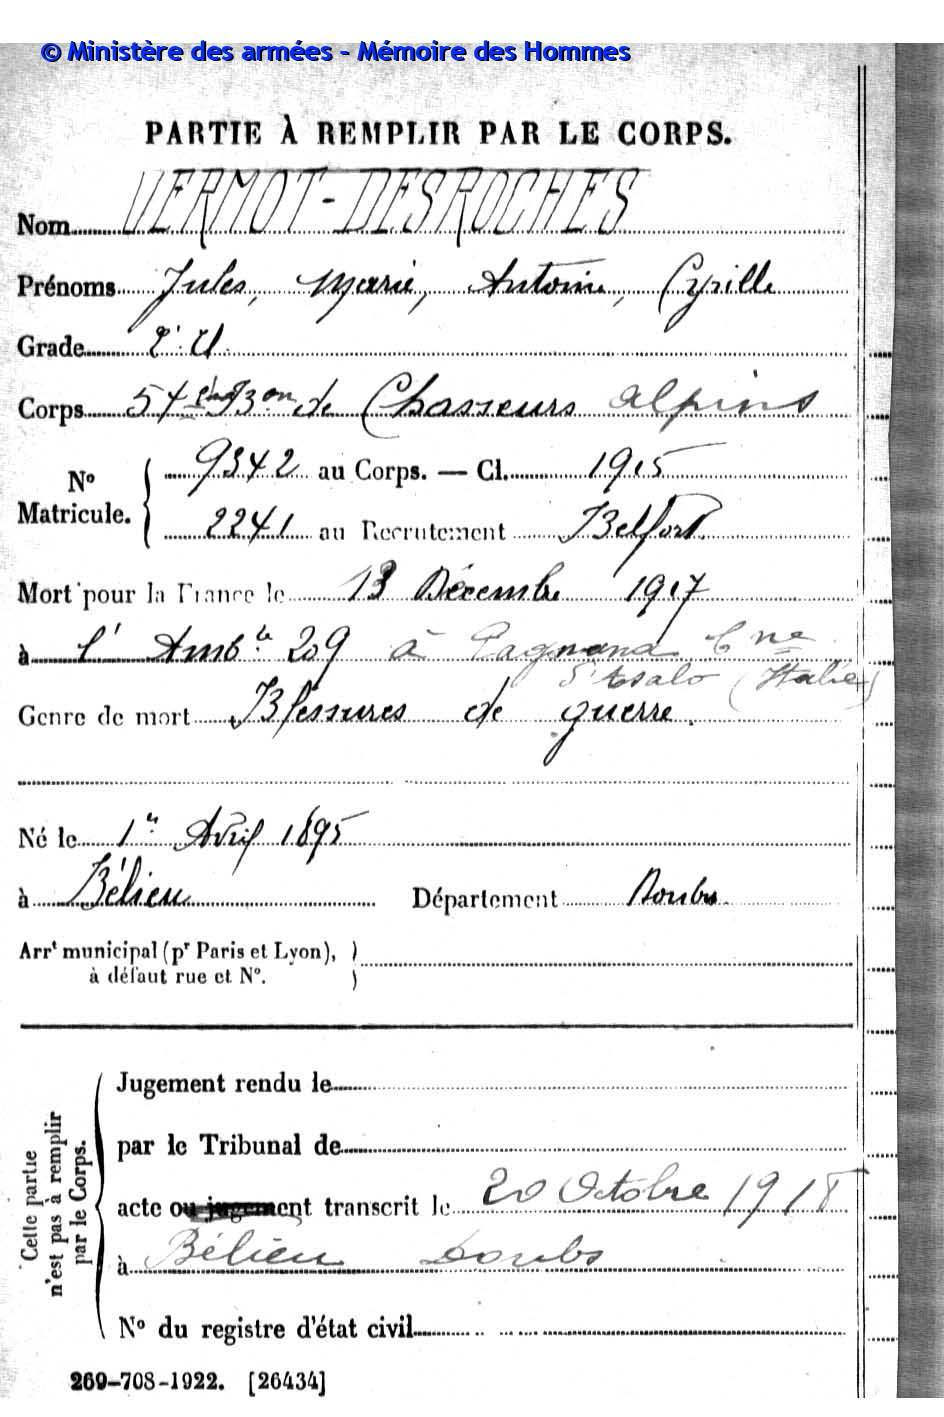 © Ministère des armées - Mémoire des Hommes
PARTIE À REMPLIR PAR LE CORPS.
Nom VERMOT-DESROCHES
Prénoms Jules, Marie, Antoine, Cyrille
Grade 2e Cl.
Corps 54ème Bon de Chasseurs alpins
No Matricule. { 9342 au Corps. — Cl. 1915
2241 au Recrutement Belfort
Mort pour la France le 13 Décembre 1917
à l'Ambce 209 à Pagnano Cne
d'Asolo (Italie)
Genre de mort Blessures de guerre.
Né le 1er Avril 1895
à Bélieu Département Doubs.
Arrt municipal (pr Paris et Lyon), à défaut rue et No.
Cette partie n'est pas à remplir par le Corps.
Jugement rendu le
par le Tribunal de
acte ou jugement transcrit le 20 Octobre 1918
à Bélieu Doubs
No du registre d'état civil
269-708-1922. [26434]